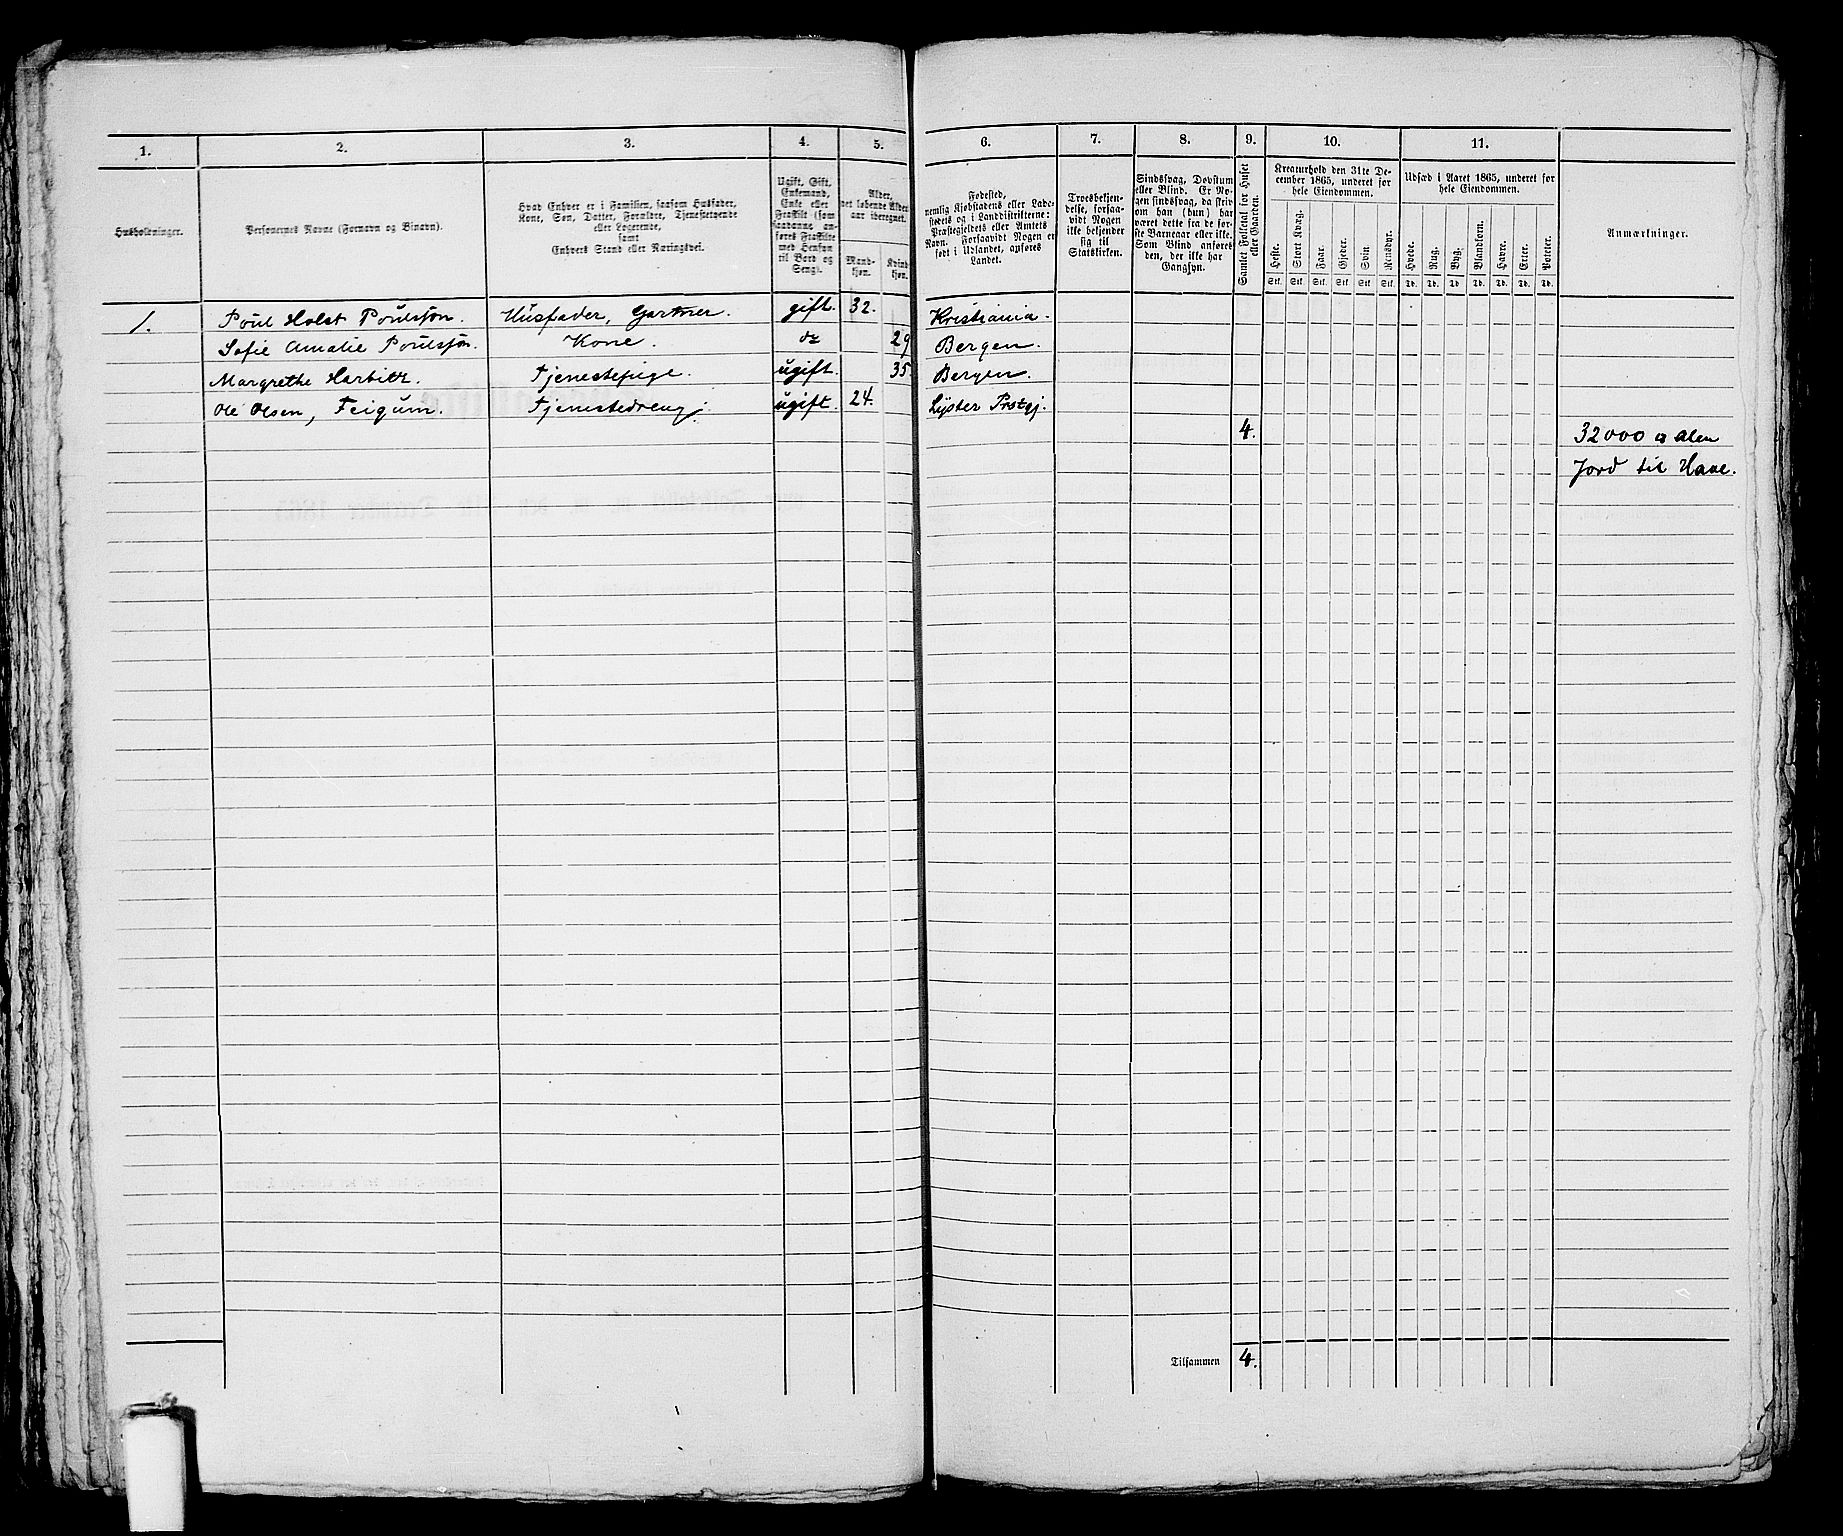 1. 2. 3. 4. 5. 6. 7. 8. 9. 10. 11.
Husholdninger.
Personernes Navne (Fornavn og Binavn).
Hvad Enhver er i Familien, saasom Husfader,
Kone, Søn, Datter, Forældre, Tjenestetyende
eller Logerende,
samt
Enhvers Stand eller Næringsvei.
Ugift, Gift,
Enkemand,
Enke eller
Fraskilt (som
saadanne an-
føres Fraskilte
med Hensyn
til Bord og
Seng).
Alder,
det løbende Alders-
aar iberegnet.
Mand-
kjøn.
Kvind-
kjøn.
Fødested,
nemlig Kjøbstadens eller Lade-
stedets og i Landdistrikterne:
Præstegjeldets eller Amtets
Navn. Forsaavidt Nogen er
født i Udlandet, anføres
Landet.
Troesbekjen-
delse, forsaa-
vidt Nogen
ikke bekjender
sig til
Statskirken.
Sindssvag, Døvstum
eller Blind. Er No-
gen sindssvag, da skriv
om han (hun) har
været dette fra de før-
ste Barneaar eller ikke.
Som Blind anføres
den, der ikke har
Gangsyn.
Samlet Folketal for Huset
eller Gaarden.
Kreaturhold den 31te De-
cember 1865, underet for
hele Eiendommen.
Heste. Stort Kvæg. Faar. Gjeder. Svin. Rensdyr.
Stk. Stk. Stk. Stk. Stk. Stk.
Udsæd i Aaret 1865, underet for
hele Eiendommen.
Hvede. Rug. Byg. Blandkorn. Havre. Erter. Poteter.
Td. Td. Td. Td. Td. Td. Td.
Anmærkninger.
1. Poul Holst Poulssøn. Husfader, Gartner. gift. 32. Kristiania.
Sofie Amalie Poulssøn. Kone. do 29 Bergen.
Margrethe Harbitz. Tjenestepige. ugift. 35. Bergen.
Ole Olsen, Feigum. Tjenestedreng. ugift. 24. Lyster Prstgj.
4. 32000 □ Alen
Jord til Have.
Tilsammen 4.